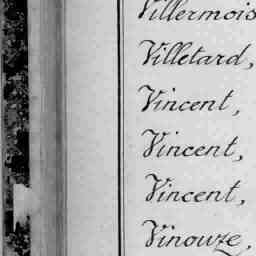 Villermois
Villetard,
Vincent,
Vincent,
Vincent,
Vinouze,